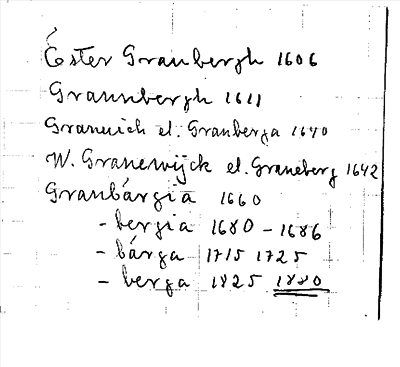 Öster Granbergh 1606
Grannbergh 1611
Granwich el. Granberga 1640
W. Granewijck el. Graneberg 1642
Granbärgia 1660
- bergia 1680 - 1686
- bärga 1715 1725
- berga 1825 1880